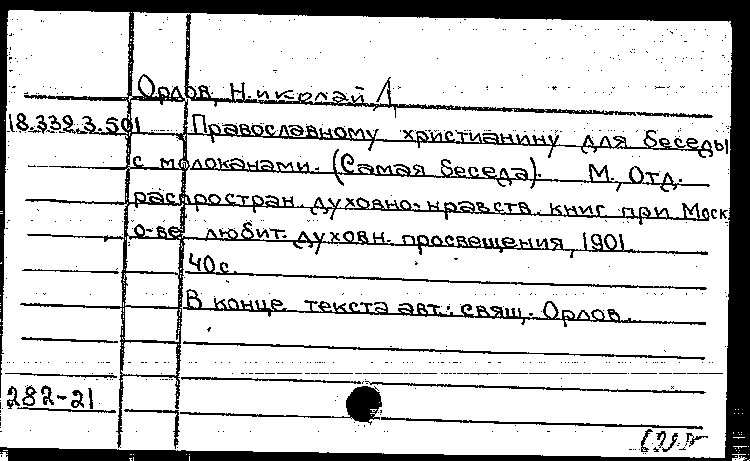 Орлов, Николай Д.
18.339.3.501 Православному христианину для беседы
с молоканами. (Самая беседа). М., Отд.
распростран. духовно-нравств. книг при Моск
о-ве любит. духовн. просвещения, 1901.
40 с.
В конце текста авт.: свящ. Орлов.
282-21